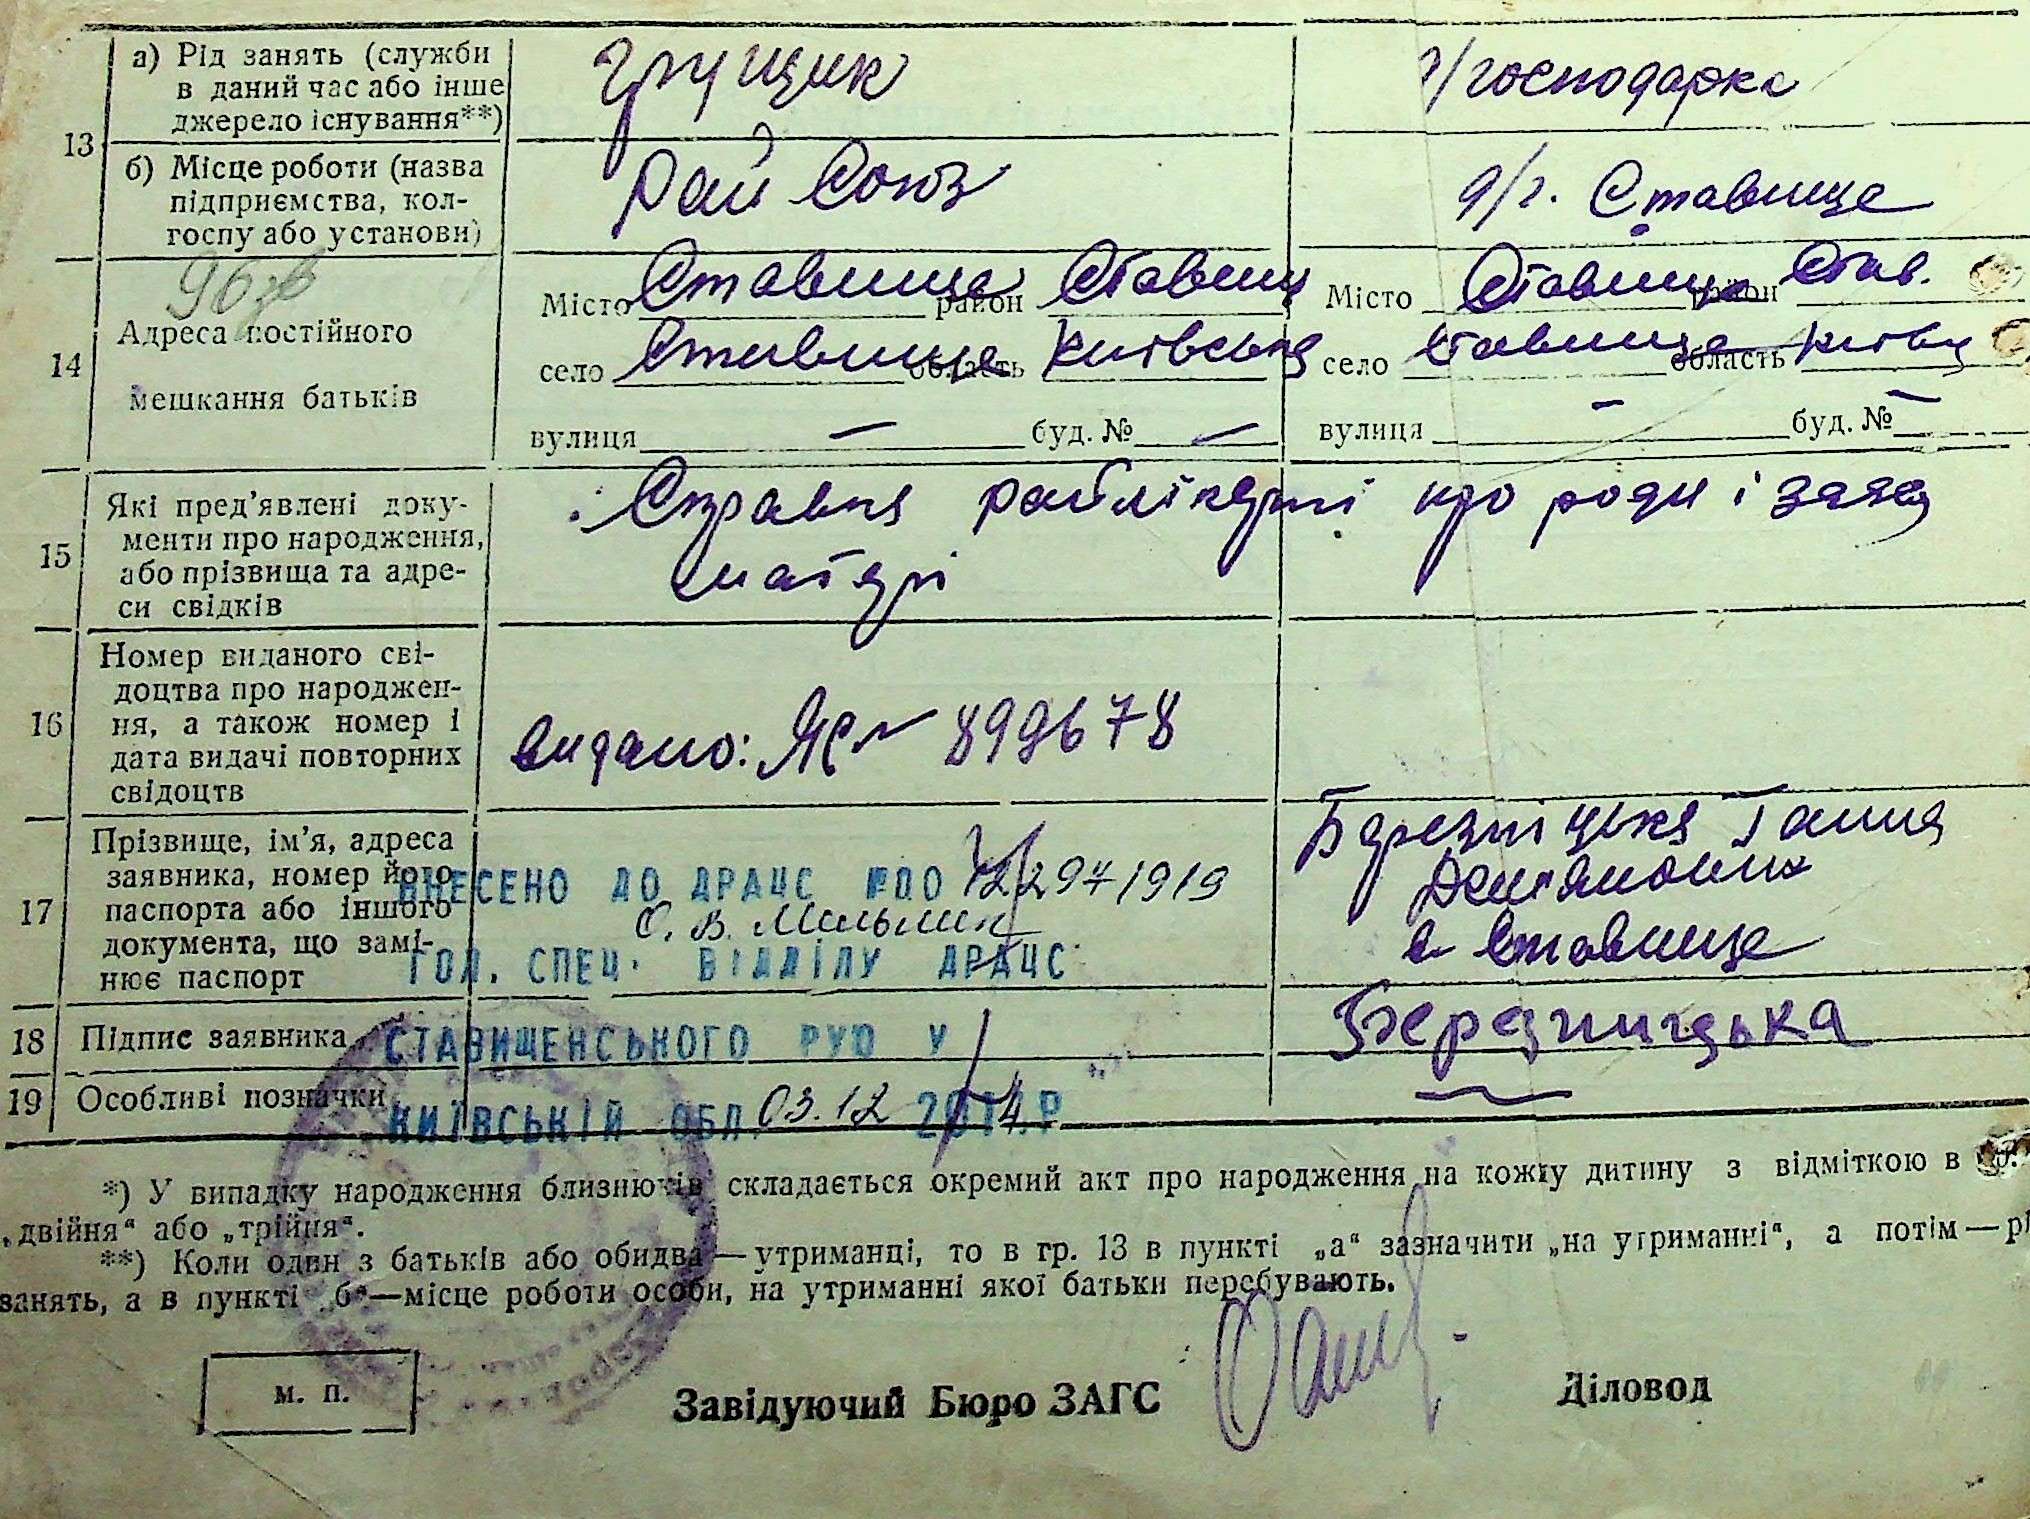 13
а) Рід занять (служби
в даний час або інше
джерело існування**)
д/господарка
б) Місце роботи (назва
підприємства, кол-
госпу або установи)
Рай Союз
д/г. Ставище
14
Адреса постійного
мешкання батьків
Місто Ставище район Ставищ
село Ставище область Київська
вулиця — буд. № —
Місто Ставище район Став.
село Ставище область Київ
вулиця — буд. № —
15
Які пред'явлені доку-
менти про народження,
або прізвища та адре-
си свідків
Справка райлікарні про роди і заява
матері
16
Номер виданого сві-
доцтва про народжен-
ня, а також номер і
дата видачі повторних
свідоцтв
видано: 899678
17
Прізвище, ім'я, адреса
заявника, номер його
паспорта або іншого
документа, що замі-
нює паспорт
Березніцька Ганна
Демянівна
с. Ставище
ВНЕСЕНО ДО ДРАЦС
О. В. Мельник
ГОЛ. СПЕЦ. ВІДДІЛУ ДРАЦС
СТАВИЩЕНСЬКОГО РУЮ У
КИЇВСЬКІЙ ОБЛ. 03.12 2014.Р
18
Підпис заявника
Березницька
19
Особливі позначки
*) У випадку народження близнюків складається окремий акт про народження на кожну дитину з відміткою в
„двійня“ або „трійня“.
**) Коли один з батьків або обидва—утриманці, то в гр. 13 в пункті „а“ зазначити „на утриманні“, а потім—рі
занять, а в пункті „б“—місце роботи особи, на утриманні якої батьки перебувають.
м. п.
Завідуючий Бюро ЗАГС
Діловод